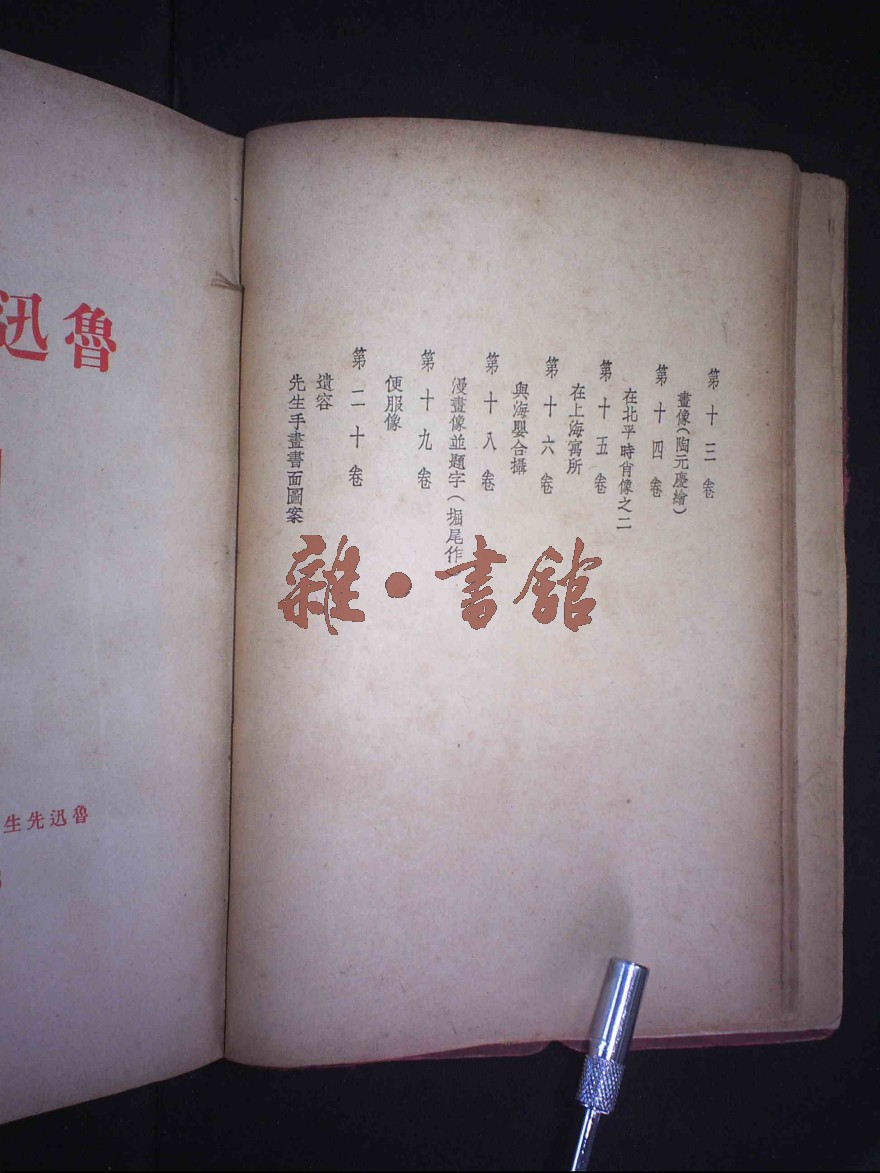 第十三卷
畫像(陶元慶繪)
第十四卷
在北平時肖像之二
第十五卷
在上海寓所
第十六卷
與海嬰合攝
第十八卷
漫畫像並題字(堀尾作
第十九卷
便服像
第二十卷
遺容
先生手畫書面圖案
雜·書館
魯迅
魯迅先生